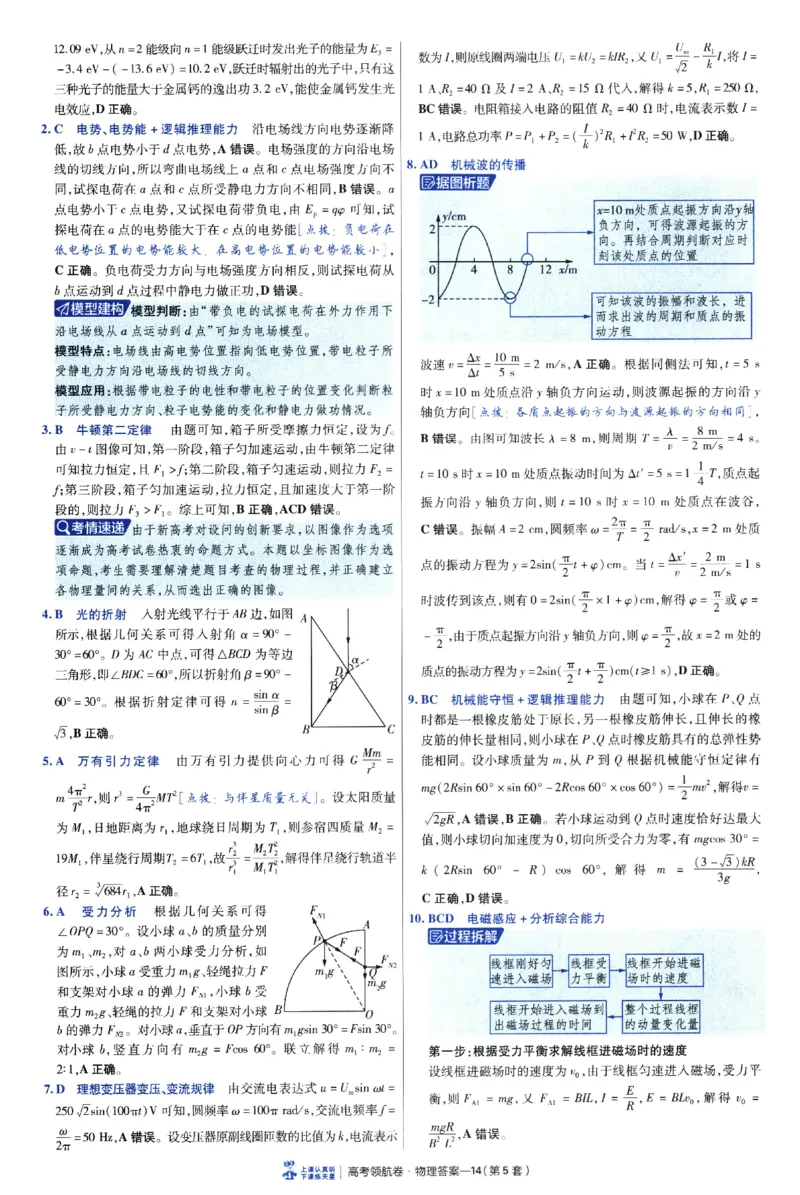 12.09 eV,从n=2能级向n=1能级跃迁时发出光子的能量为E₃=
-3.4 eV-(-13.6 eV)=10.2 eV,跃迁时辐射出的光子中,只有这
三种光子的能量大于金属钙的逸出功3.2 eV,能使金属钙发生光
电效应,D正确。
2.C 电势、电势能+逻辑推理能力 沿电场线方向电势逐渐降
低,故b点电势小于d点电势,A错误。电场强度的方向沿电场
线的切线方向,所以弯曲电场线上a点和c点电场强度方向不
同,试探电荷在a点和c点所受静电力方向不相同,B错误。a
点电势小于c点电势,又试探电荷带负电,由Eₚ=qφ可知,试
探电荷在a点的电势能大于在c点的电势能[点拨:负电荷在
低电势位置的电势能较大,在高电势位置的电势能较小],
C正确。负电荷受力方向与电场强度方向相反,则试探电荷从
b点运动到d点过程中静电力做正功,D错误。
模型建构 模型判断:由“带负电的试探电荷在外力作用下
沿电场线从a点运动到d点”可知为电场模型。
模型特点:电场线由高电势位置指向低电势位置,带电粒子所
受静电力方向沿电场线的切线方向。
模型应用:根据带电粒子的电性和带电粒子的位置变化判断粒
子所受静电力方向、粒子电势能的变化和静电力做功情况。
3.B 牛顿第二定律 由题可知,箱子所受摩擦力恒定,设为f。
由v-t图像可知,第一阶段,箱子匀加速运动,由牛顿第二定律
可知拉力恒定,且F₁>f;第二阶段,箱子匀速运动,则拉力F₂=
f;第三阶段,箱子匀加速运动,拉力恒定,且加速度大于第一阶
段的,则拉力F₃>F₁。综上可知,B正确,ACD错误。
考情速递 由于新高考对设问的创新要求,以图像作为选项
逐渐成为高考试卷热衷的命题方式。本题以坐标图像作为选
项命题,考生需要理解清楚题目考查的物理过程,并正确建立
各物理量间的关系,从而选出正确的图像。
4.B 光的折射 入射光线平行于AB边,如图
所示,根据几何关系可得入射角α=90°-
30°=60°。D为AC中点,可得△BCD为等边
三角形,即∠BDC=60°,所以折射角β=90°-
60°=30°。根据折射定律可得n=sin α/sin β=
√3,B正确。
A
α
D
β
B
C
5.A 万有引力定律 由万有引力提供向心力可得G Mm/r²=
m 4π²/T² r,则r³=G/4π² MT²[点拨:与伴星质量无关]。设太阳质量
为M₁,日地距离为r₁,地球绕日周期为T₁,则参宿四质量M₂=
19M₁,伴星绕行周期T₂=6T₁,故r₂³/r₁³=M₂T₂²/M₁T₁²,解得伴星绕行轨道半
径r₂=³√684 r₁,A正确。
6.A 受力分析 根据几何关系可得
∠OPQ=30°。设小球a、b的质量分别
为m₁、m₂,对a、b两小球受力分析,如
图所示,小球a受重力m₁g、轻绳拉力F
和支架对小球a的弹力F_N1,小球b受
重力m₂g、轻绳的拉力F和支架对小球
b的弹力F_N2。对小球a,垂直于OP方向有m₁gsin 30°=Fsin 30°。
对小球b,竖直方向有m₂g=Fcos 60°。联立解得m₁:m₂=
2:1,A正确。
F_N1
A
P
F
F
F_N2
m₁g
Q
m₂g
B
O
7.D 理想变压器变压、变流规律 由交流电表达式u=Uₘsin ωt=
250√2sin(100πt)V可知,圆频率ω=100π rad/s,交流电频率f=
ω/2π=50 Hz,A错误。设变压器原副线圈匝数的比值为k,电流表示
数为I,则原线圈两端电压U₁=kU₂=kIR₂,又U₁=Uₘ/√2-R₁/k I,将I=
1 A、R₂=40 Ω及I=2 A、R₂=15 Ω代入,解得k=5,R₁=250 Ω,
BC错误。电阻箱接入电路的阻值R₂=40 Ω时,电流表示数I=
1 A,电路总功率P=P₁+P₂=(I/k)²R₁+I²R₂=50 W,D正确。
8.AD 机械波的传播
据图析题
y/cm
2
0
4
8
12
x/m
-2
x=10 m处质点起振方向沿y轴
负方向,可得波源起振的方
向。再结合周期判断对应时
刻该处质点的位置
可知该波的振幅和波长,进
而求出波的周期和质点的振
动方程
波速v=Δx/Δt=10 m/5 s=2 m/s,A正确。根据同侧法可知,t=5 s
时x=10 m处质点沿y轴负方向运动,则波源起振的方向沿y
轴负方向[点拨:各质点起振的方向与波源起振的方向相同],
B错误。由图可知波长λ=8 m,则周期T=λ/v=8 m/2 m/s=4 s。
t=10 s时x=10 m处质点振动时间为Δt′=5 s=1 1/4 T,质点起
振方向沿y轴负方向,则t=10 s时x=10 m处质点在波谷,
C错误。振幅A=2 cm,圆频率ω=2π/T=π/2 rad/s,x=2 m处质
点的振动方程为y=2sin(π/2 t+φ)cm。当t=Δx′/v=2 m/2 m/s=1 s
时波传到该点,则有0=2sin(π/2×1+φ)cm,解得φ=π/2或φ=
-π/2,由于质点起振方向沿y轴负方向,则φ=π/2,故x=2 m处的
质点的振动方程为y=2sin(π/2 t+π/2)cm(t≥1 s),D正确。
9.BC 机械能守恒+逻辑推理能力 由题可知,小球在P、Q点
时都是一根橡皮筋处于原长,另一根橡皮筋伸长,且伸长的橡
皮筋的伸长量相同,则小球在P、Q点时橡皮筋具有的总弹性势
能相同。设小球质量为m,从P到Q根据机械能守恒定律有
mg(2Rsin 60°×sin 60°-2Rcos 60°×cos 60°)=1/2 mv²,解得v=
√2gR,A错误,B正确。若小球运动到Q点时速度恰好达最大
值,则小球切向加速度为0,切向所受合力为零,有mgcos 30°=
k(2Rsin 60°-R)cos 60°,解得m=(3-√3)kR/3g,
C正确,D错误。
10.BCD 电磁感应+分析综合能力
过程拆解
线框刚好匀
速进入磁场
线框受
力平衡
线框开始进磁
场时的速度
线框开始进入磁场到
出磁场过程的时间
整个过程线框
的动量变化量
第一步:根据受力平衡求解线框进磁场时的速度
设线框进磁场时的速度为v₀,由于线框匀速进入磁场,受力平
衡,则F_A1=mg,又F_A1=BIL,I=E/R,E=BLv₀,解得v₀=
mgR/B²L²,A错误。
上课认真听
下课练天星
高考领航卷·物理答案—14(第5套)